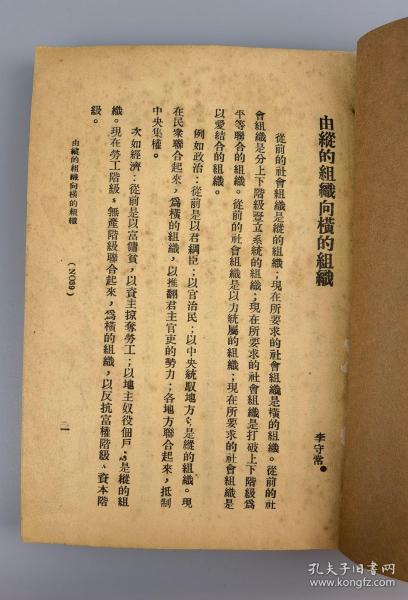 由縱的組織向橫的組織
李守常
從前的社會組織是縱的組織；現在所要求的社會組織是橫的組織。從前的社
會組織是分上下階級豎立系統的組織；現在所要求的社會組織是打破上下階級爲
平等聯合的組織。從前的社會組織是以力統屬的組織；現在所要求的社會組織是
以愛結合的組織。
例如政治：從前是以君綱臣；以官治民；以中央統馭地方；是縱的組織。現
在民衆聯合起來，爲橫的組織，以推翻君主官吏的勢力；各地方聯合起來，抵制
中央集權。
次如經濟：從前是以富傭貧，以資主掠奪勞工；以地主奴役佃戶；是縱的組
織。現在勞工階級、無產階級聯合起來，爲橫的組織，以反抗富權階級、資本階
級。
由縱的組織向橫的組織
(N039)
一
孔夫子旧书网
www.kongfz.com